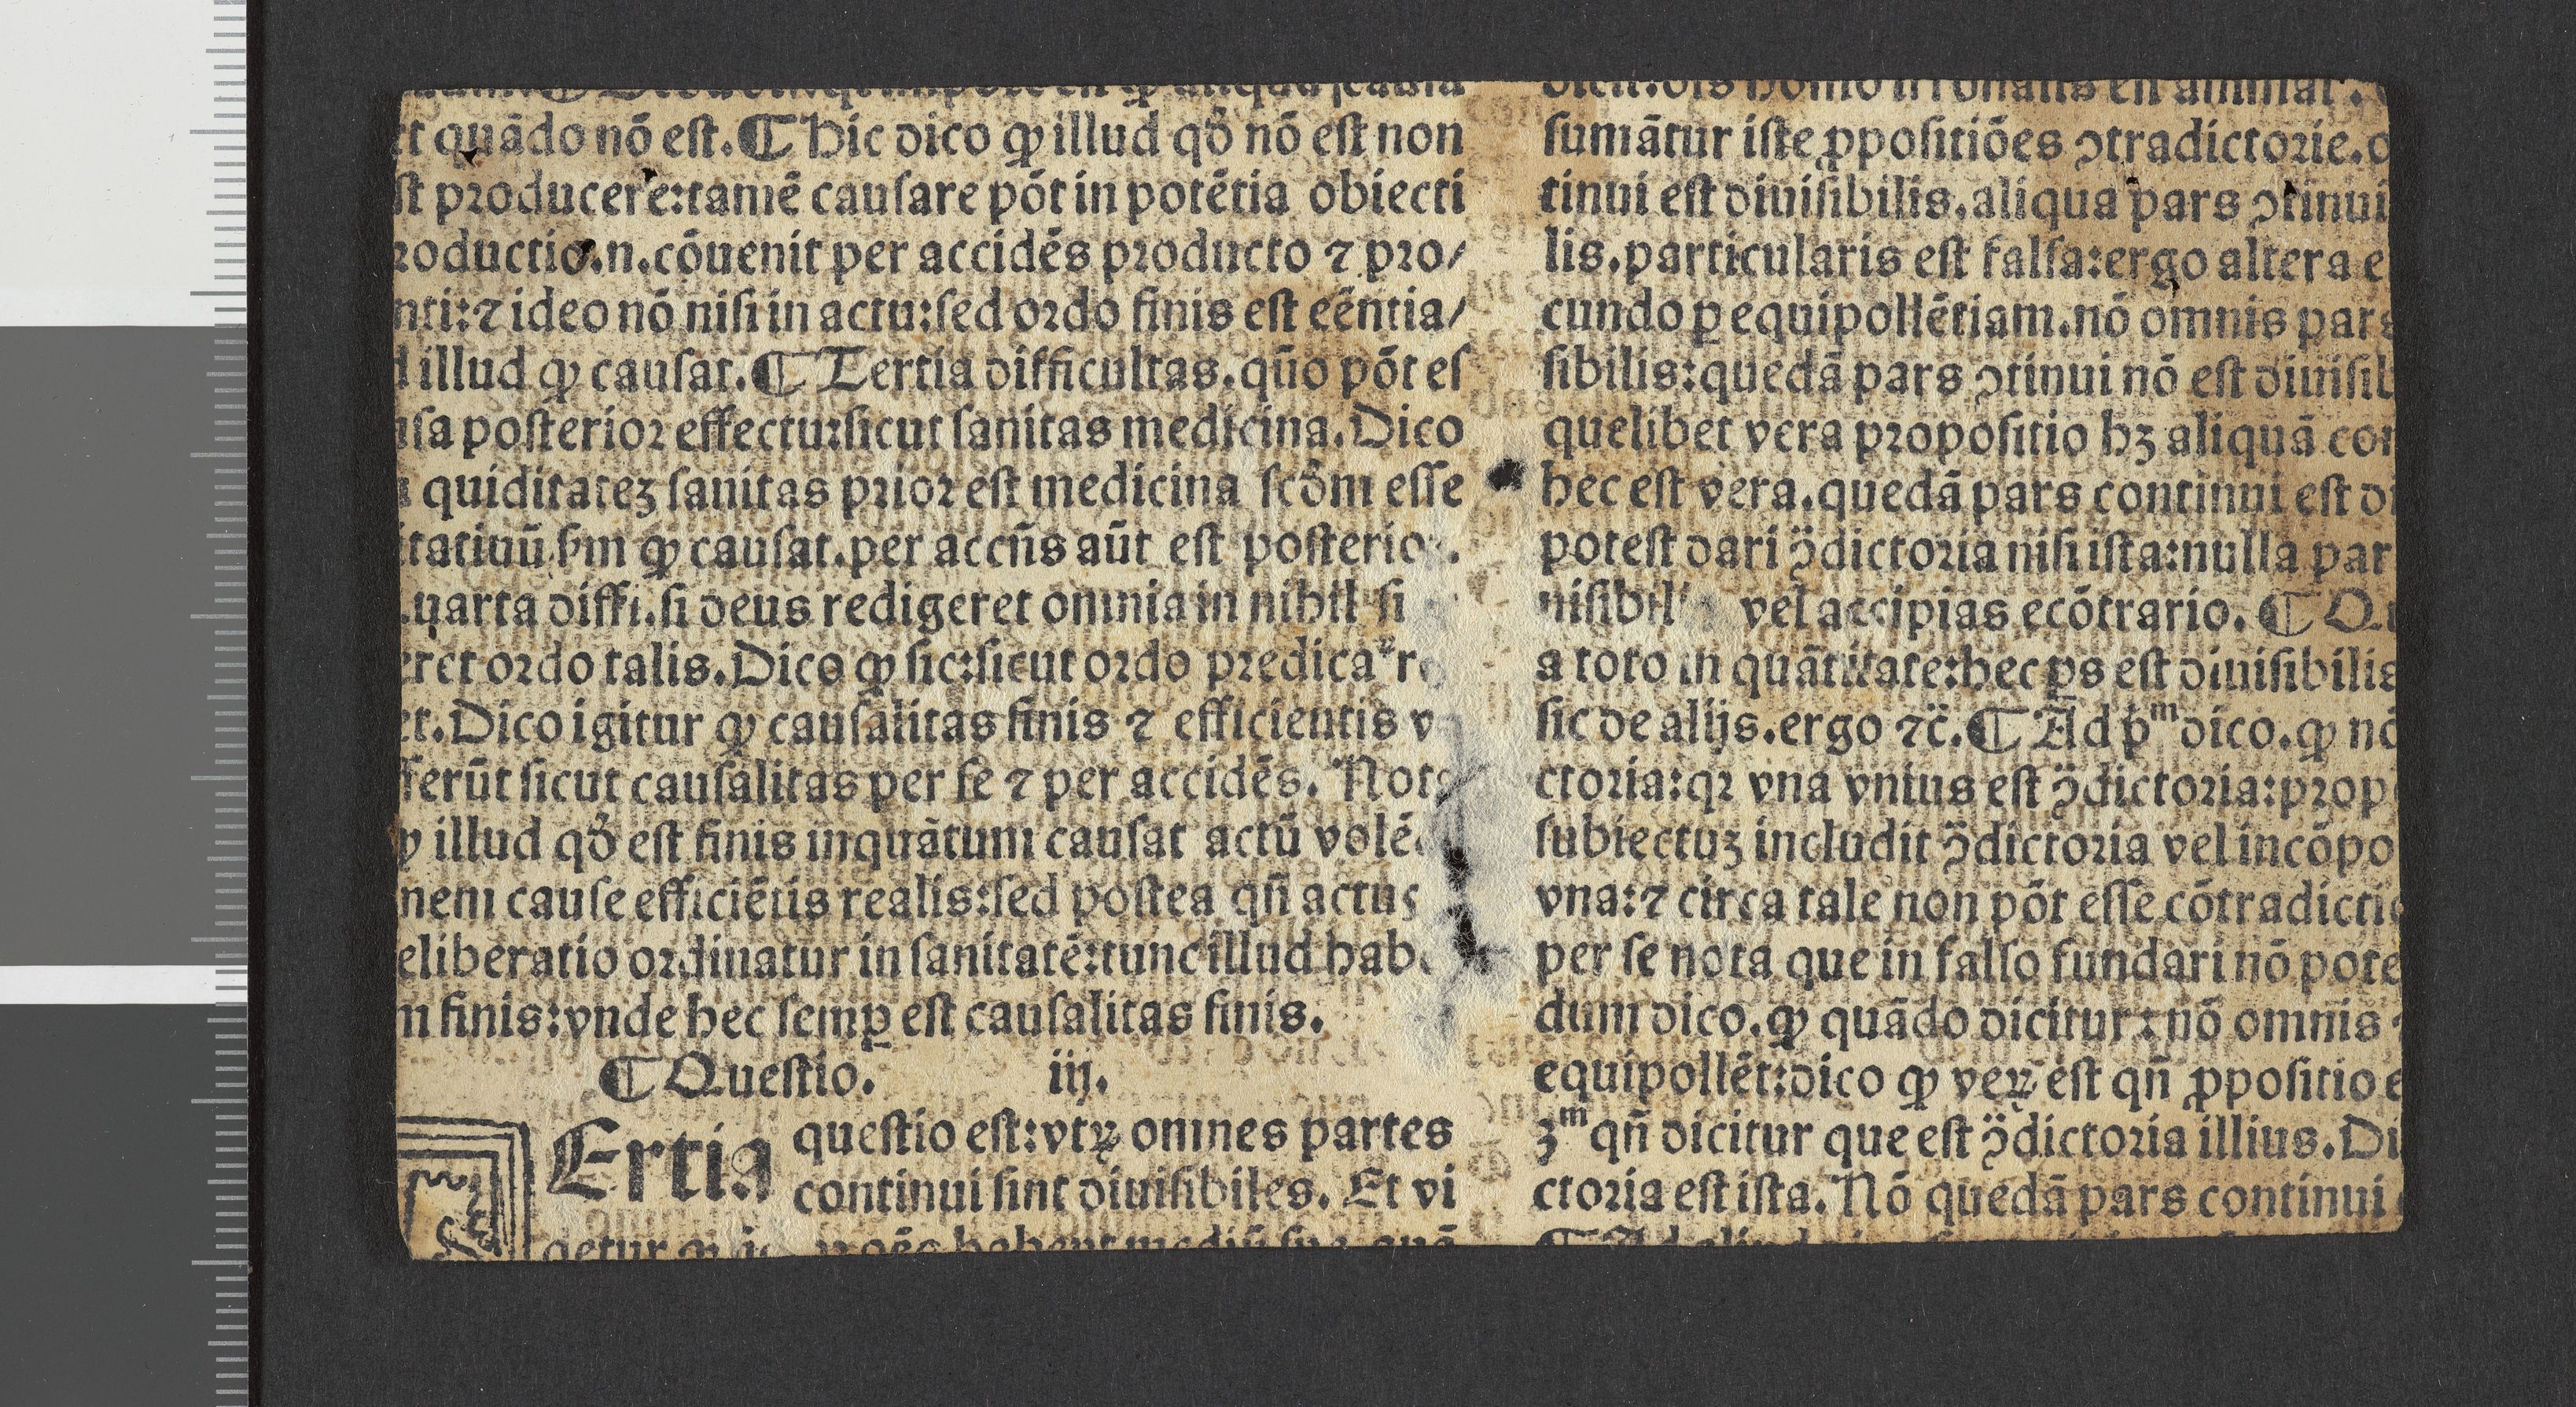 et quādo nō eſt. ¶ Hic dico ꝙ illud qḋ nō eſt non
ſt producere: tamē cauſare pōt in potētia obiecti
roductio.n.cōuenit per accidēs producto ⁊ pro/
nti: ⁊ ideo nō niſi in actu: ſed ordo finis eſt eēntia/
d illud ꝙ cauſat. ¶ Tertia difficultas. qūo pōt eſ
uſa poſterior effectu: ſicut ſanitas medicina. Dico
quiditateꝫ ſanitas prior eſt medicina ſcḋm eſſe
itatiuū ẜm ꝙ cauſat. per accn̄s aūt eſt poſterio
.uarta diffi. ſi deus redigeret omnia in nihil ſi
eret ordo talis. Dico ꝙ ſic: ſicut ordo
et. Dico igitur ꝙ cauſalitas finis ⁊ efficientis
fferūt ſicut cauſalitas per ſe ⁊ per accidēs. Not
ꝙ illud qḋ eſt finis inquātum cauſat actū volē
nem cauſe efficiētis realis: ſed poſtea qn̄ actus
eliberatio ordinatur in ſanitatē: tunc illud hab
m finis: vnde hec ſemꝑ eſt cauſalitas finis.
¶ Queſtio. iij.
Ertia queſtio eſt: vtꝝ omnes partes
continui ſint diuiſibiles. Et vi
ſumātur iſte ꝓpoſitiōes ꝯtradictorie. o
tinui eſt diuiſibilis. aliqua pars ꝯtinui
lis. particularis eſt falſa: ergo altera e
cundo ꝑ equipollētiam. nō omnis pars
ſibilis: quedā pars ꝯtinui nō eſt diuiſib
quelibet vera propoſitio hꝫ aliquā con
hec eſt vera. quedā pars continui eſt di
poteſt dari ꝯ̈dictoria niſi iſta: nulla par
uiſibil vel accipias ecōtrario. ¶ Qu
a toto in quātitate: hec ꝑs eſt diuiſibilis
ſic de alijs. ergo ⁊c̄. ¶ Ad pͫ dico. ꝙ nō
ctoria: qꝛ vna vnius eſt ꝯ̈dictoria: prop
ſubiectuꝫ includit ꝯ̈dictoria vel incōpo
vna: ⁊ circa tale non pōt eſſe cōtradictio
per ſe nota que in falſo fundari nō pote
dum dico. ꝙ quādo dicitur: nō omnis
equipollēt: dico ꝙ veꝝ eſt qn̄ ꝓpoſitio e
3ͫ qn̄ dicitur que eſt ꝯ̈dictoria illius. Di
ctoria eſt iſta. Nō quedā pars continui